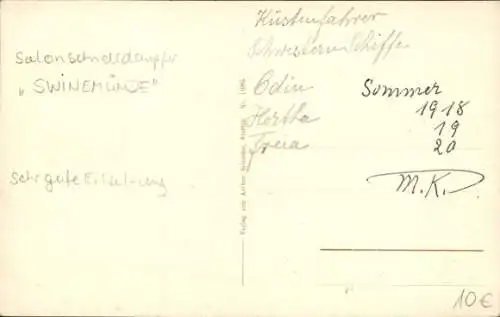 Salonschnelldampfer
„SWINEMÜNDE"
Sehr gute Erhaltung
Küstenfahrer
Schwestern Schiffe
Odin
Hertha
Freia
Sommer
1918
19
20
M.K.
Verlag von Arthur
10€